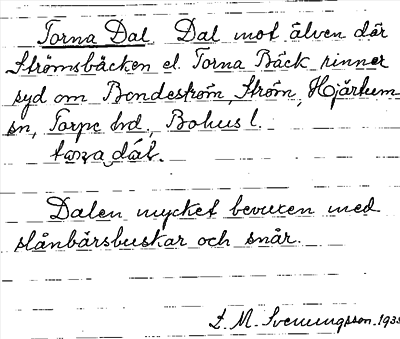 Torna Dal Dal mot älven där
Strömsbäcken el. Torna Bäck rinner
syd om Bondeström, Ström, Hjärtum
sn, Torpe hd., Bohusl.
Dalen mycket bevuxen med
slånbärsbuskar och snår.
L. M. Svenungsson. 1935